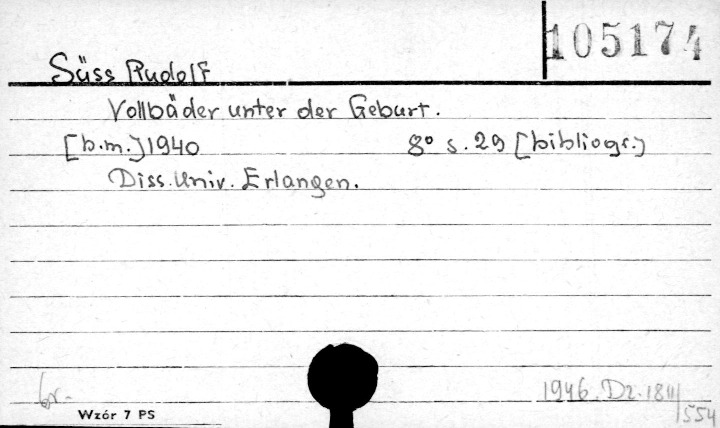 105174
Süss Rudolf
Vollbäder unter der Geburt.
[b.m.] 1940 8° s. 29 [bibliogr.]
Diss. Univ. Erlangen.
br.
1946. Dz.
/554
Wzór 7 PS